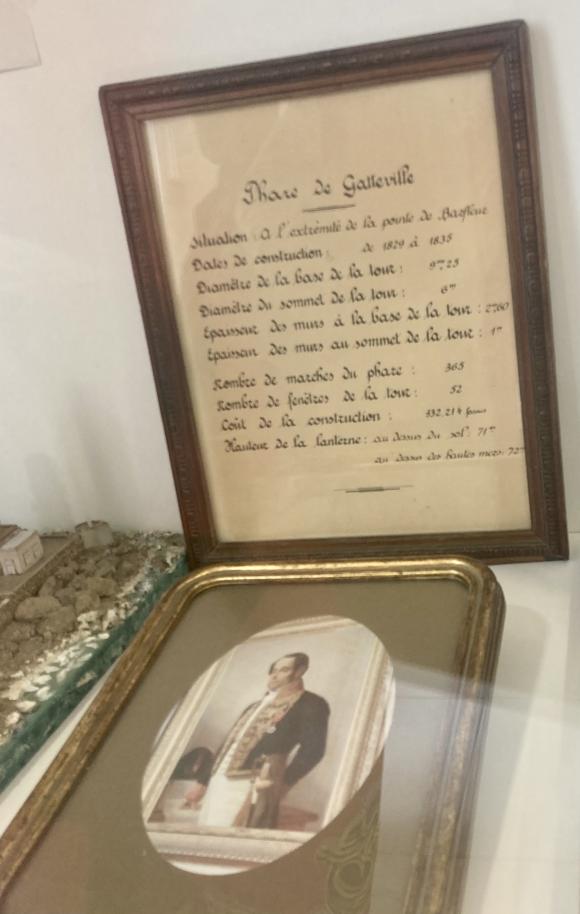 Phare de Gatteville
Situation : A l'extrémité de la pointe de Barfleur
Dates de construction : de 1829 à 1835
Diamètre de la base de la tour : 9m25
Diamètre du sommet de la tour : 6m
Epaisseur des murs à la base de la tour : 2m60
Epaisseur des murs au sommet de la tour : 1m
Nombre de marches du phare : 365
Nombre de fenêtres de la tour : 52
Coût de la construction : 332.214 francs
Hauteur de la lanterne : au dessus du sol : 71m
au dessus des hautes mers : 72m